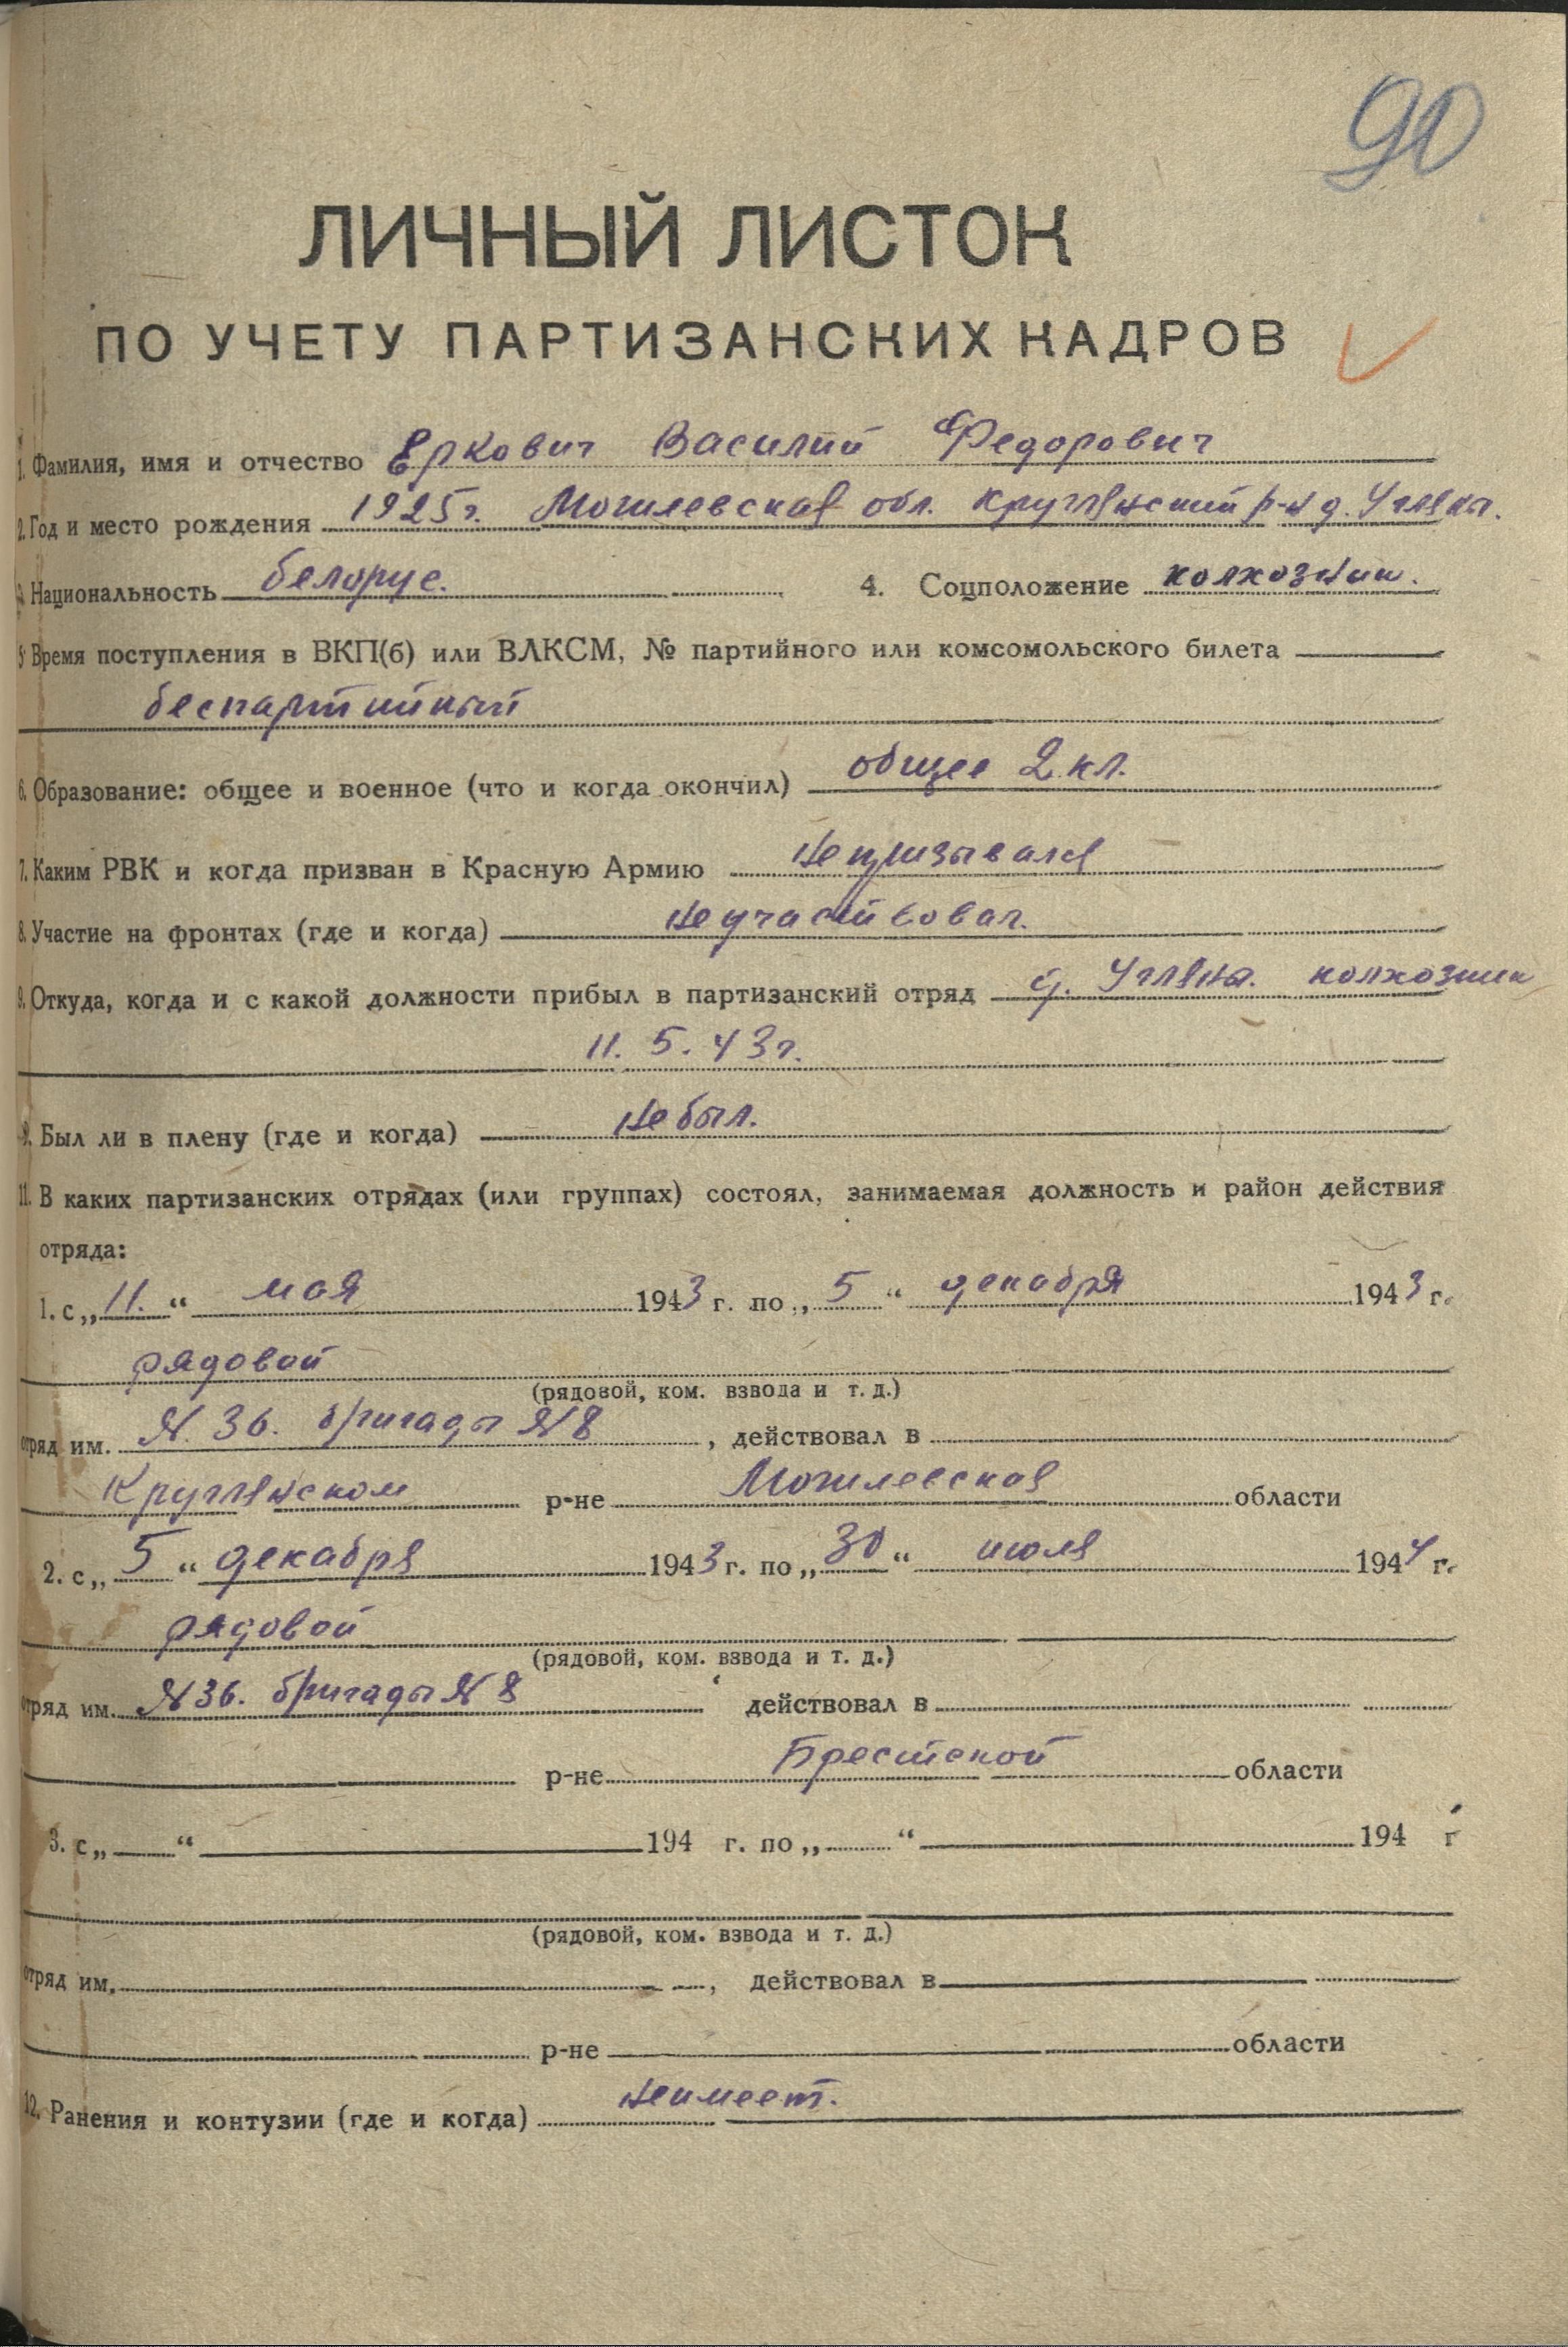 90
ЛИЧНЫЙ ЛИСТОК
ПО УЧЕТУ ПАРТИЗАНСКИХ КАДРОВ
1. Фамилия, имя и отчество Еркович Василий Федорович
2. Год и место рождения 1925г. Могилевская обл. Круглянский р-н д. Угляны.
Национальность белорус. 4. Соцположение колхозник.
5. Время поступления в ВКП(б) или ВЛКСМ, № партийного или комсомольского билета
беспартийный
6. Образование: общее и военное (что и когда окончил) общее 2 кл.
7. Каким РВК и когда призван в Красную Армию не призывался
8. Участие на фронтах (где и когда) не участвовал.
9. Откуда, когда и с какой должности прибыл в партизанский отряд д. Угляны. колхозник
11. 5. 43г.
Был ли в плену (где и когда) не был.
11. В каких партизанских отрядах (или группах) состоял, занимаемая должность и район действия
отряда:
1. с „11.“ мая 1943 г. по „5“ декабря 1943 г.
рядовой
(рядовой, ком. взвода и т. д.)
отряд им. N. 36. бригады N 8, действовал в
Круглянском р-не Могилевская области
2. с „5“ декабря 1943 г. по „30“ июля 1944 г.
рядовой
(рядовой, ком. взвода и т. д.)
отряд им. N 36. бригады N 8 действовал в
р-не Брестской области
3. с „ “ 194 г. по „ “ 194 г
(рядовой, ком. взвода и т. д.)
отряд им. , действовал в
р-не области
12. Ранения и контузии (где и когда) не имеет.